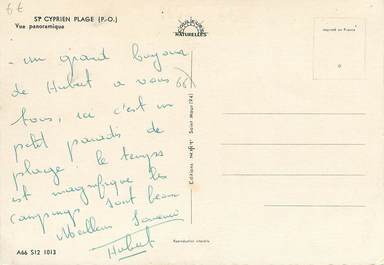 6€
St CYPRIEN PLAGE (P.-O.)
Vue panoramique
COULEURS
NATURELLES
Imprimé en France
- un grand bonjour
de Hubert a vous
tous, ici c'est un
petit paradis de
plage. le temps
est magnifique les
campings sont beaux
Meilleur Souvenir
Hubert
66
Editions
Saint Maur (94)
A66 S12 1013
Reproduction interdite